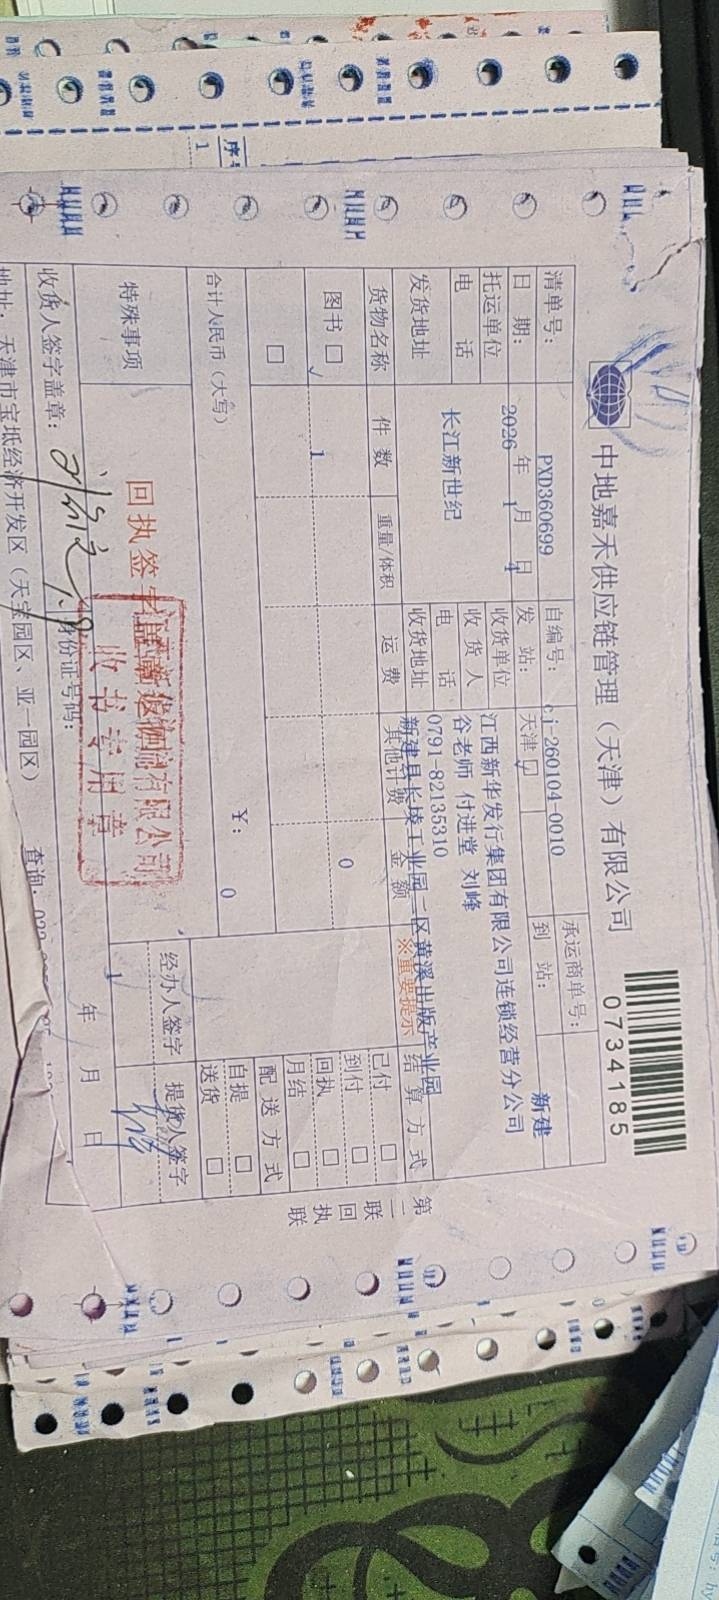 中地嘉禾供应链管理（天津）有限公司
0734185
清单号： PXD360699 自编号： cj-260104-0010 承运商单号：
日 期： 2026 年 1 月 4 日 发 站： 天津 到 站： 新建
托运单位 收货单位 江西新华发行集团有限公司连锁经营分公司
长江新世纪 收 货 人 谷老师 付进堂 刘峰
电 话 电 话 0791-82135310
发货地址 收货地址 新建县长堎工业园二区黄溪出版产业园
货物名称 件 数 重量/体积 运 费 其他计费 金 额 ※重要提示 结 算 方 式
图书 □ √ 1 0
□
已付 □
到付 □
回执 □
月结 □
配 送 方 式
自提 □
送货 □
合计人民币（大写） ￥： 0
特殊事项
回执签字盖章返
有限公司
收书专用章
经办人签字 提货人签字
收货人签字盖章：
身份证号码：
年 月 日
地址：天津市宝坻经济开发区（天宝园区、亚一园区）
查询：
第二联 回执联
序号
1